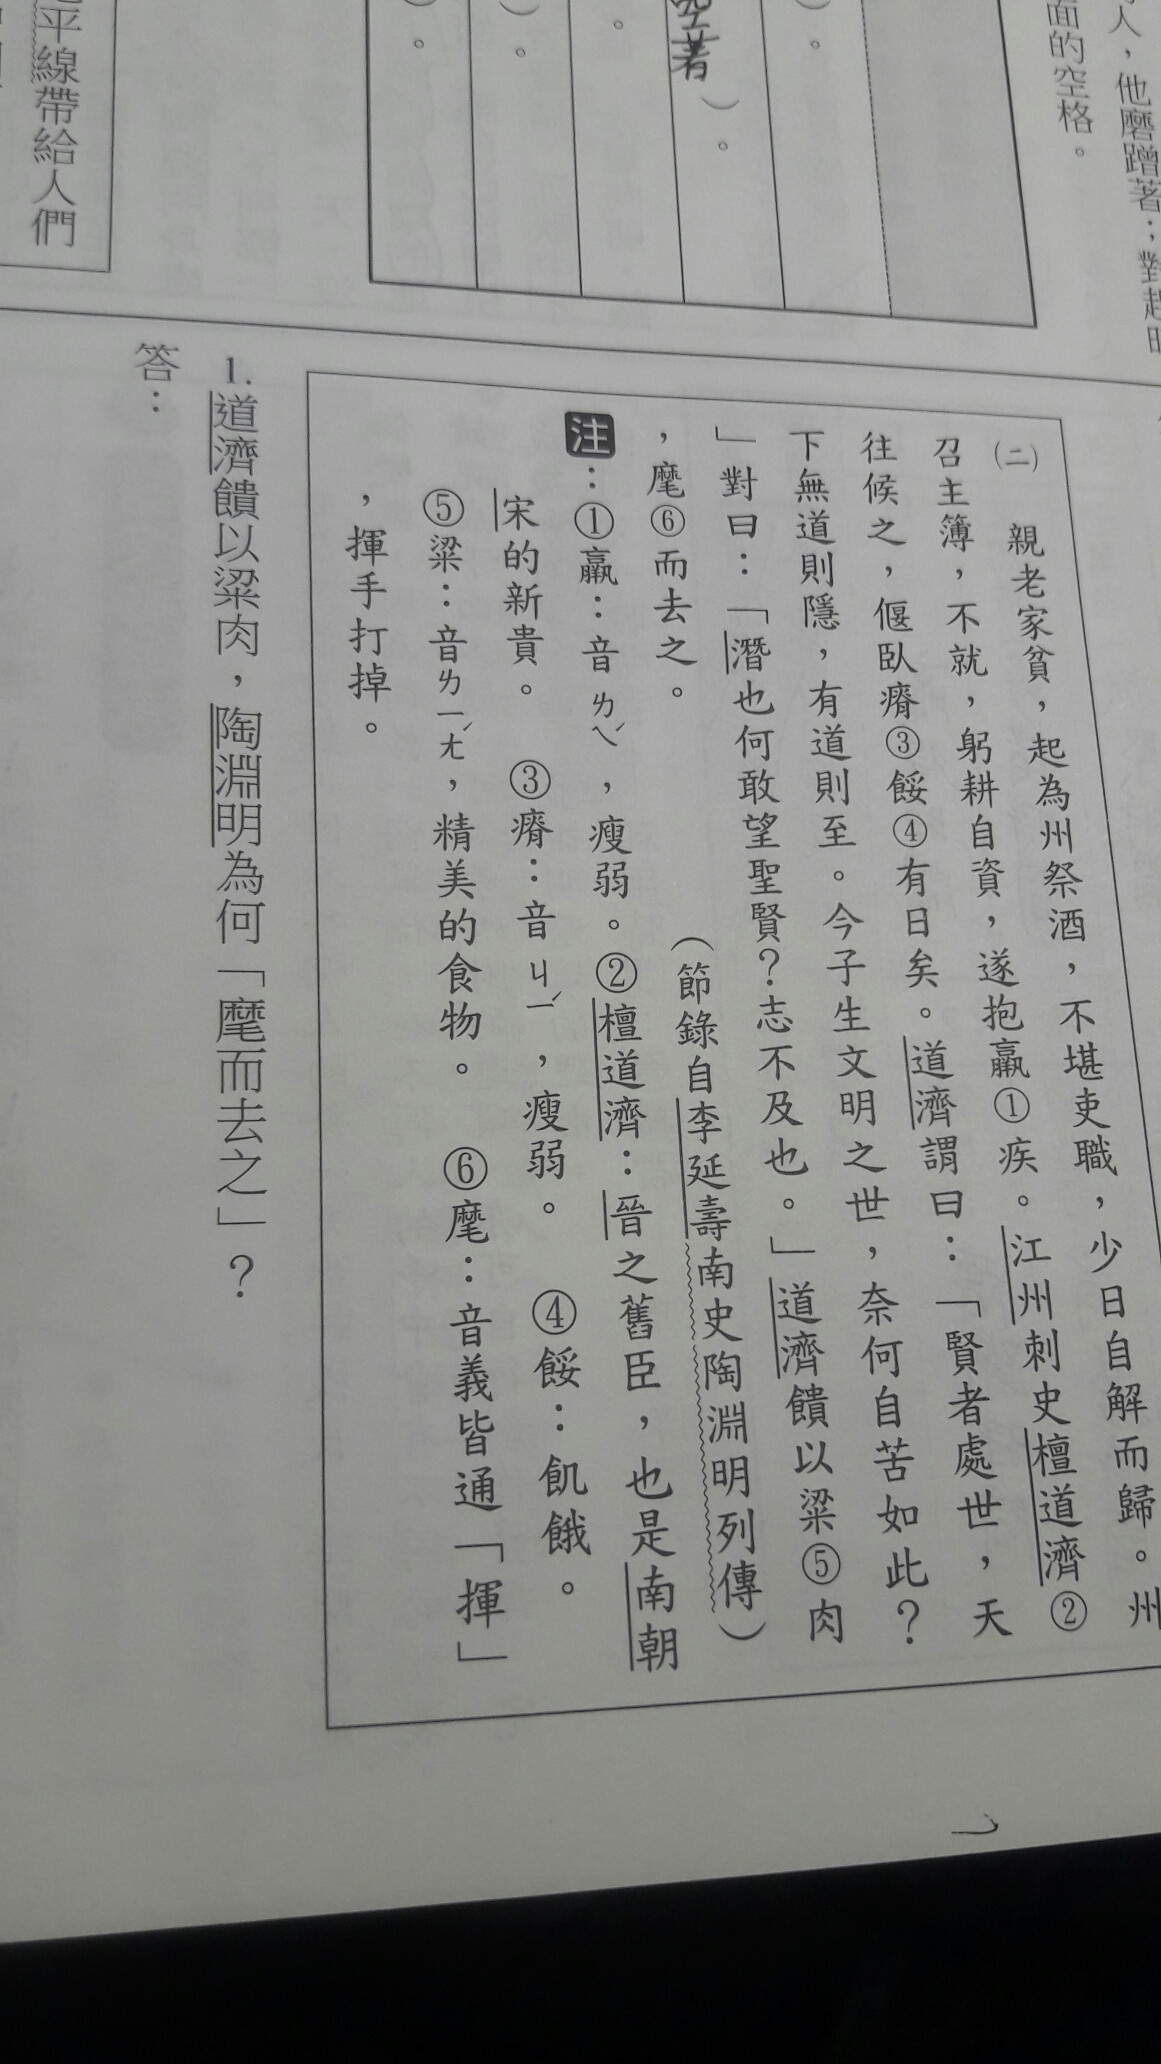 人，他磨蹭著；對起
面的空格。
）。
空著）。
。
）。
）。
平線帶給人們
㈡　親老家貧，起為州祭酒，不堪吏職，少日自解而歸。州
召主簿，不就，躬耕自資，遂抱羸①疾。江州刺史檀道濟②
往候之，偃臥瘠③餒④有日矣。道濟謂曰：「賢者處世，天
下無道則隱，有道則至。今子生文明之世，奈何自苦如此？
」對曰：「潛也何敢望聖賢？志不及也。」道濟饋以粱⑤肉
，麾⑥而去之。
（節錄自李延壽南史陶淵明列傳）
注：①羸：音ㄌㄟˊ，瘦弱。②檀道濟：晉之舊臣，也是南朝
宋的新貴。　③瘠：音ㄐㄧˊ，瘦弱。　④餒：飢餓。
⑤粱：音ㄌㄧㄤˊ，精美的食物。　⑥麾：音義皆通「揮」
，揮手打掉。
1.道濟饋以粱肉，陶淵明為何「麾而去之」？
答：